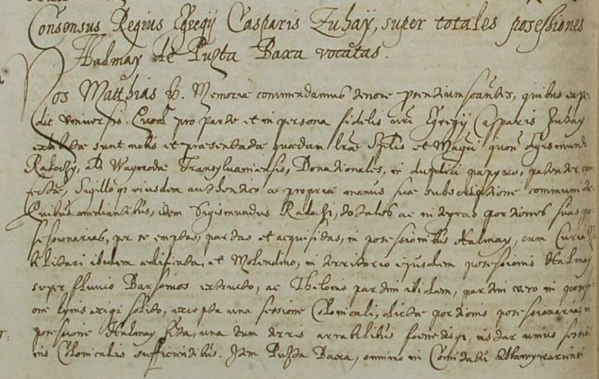 Consensus Regius Egregij Casparis Zuhaÿ, super totales possessiones
Halmaÿ de Puszta Baxa vocatas.
Nos Matthias &. Memoriae commendamus tenore pntium signantes, quibus expe-
dit vniversis. Quod pro parte et in persona fidelis nri Egregij Casparis Zuhaÿ
exhibitae sunt nobis et praesentatae quaedam lrae Splis et Magci quon Sigismundi
Rakoczÿ, Waÿvodae Transÿlvaniensis, Donationales, in duplici papÿro, patenter con-
fectae, Sigilloq eiusdem authentico ac propriae manus suae subscriptione communitae.
Quibus mediantibus, idem Sigismundus Rakoczi, totales ac integras portiones suas po-
sessionarias, per se emptas, partas et acquisitas, in possessionibus Halmaÿ, cum Curia
ibidem aedificata, et Molendino, in territorio ejusdem possessionis Halmaÿ
super fluvio Barsonios extructo, ac Thelonio partim ibidem, partim vero in
exigi solito, excepta una sessione Colonicali, dictae portionis possessionariae, in
possessione Halmaÿ una cum terris arabilibus foenetis instar unius sessio-
nis Colonicalis sufficientibus. Item Puszta Baxa, omnino in Comitatu